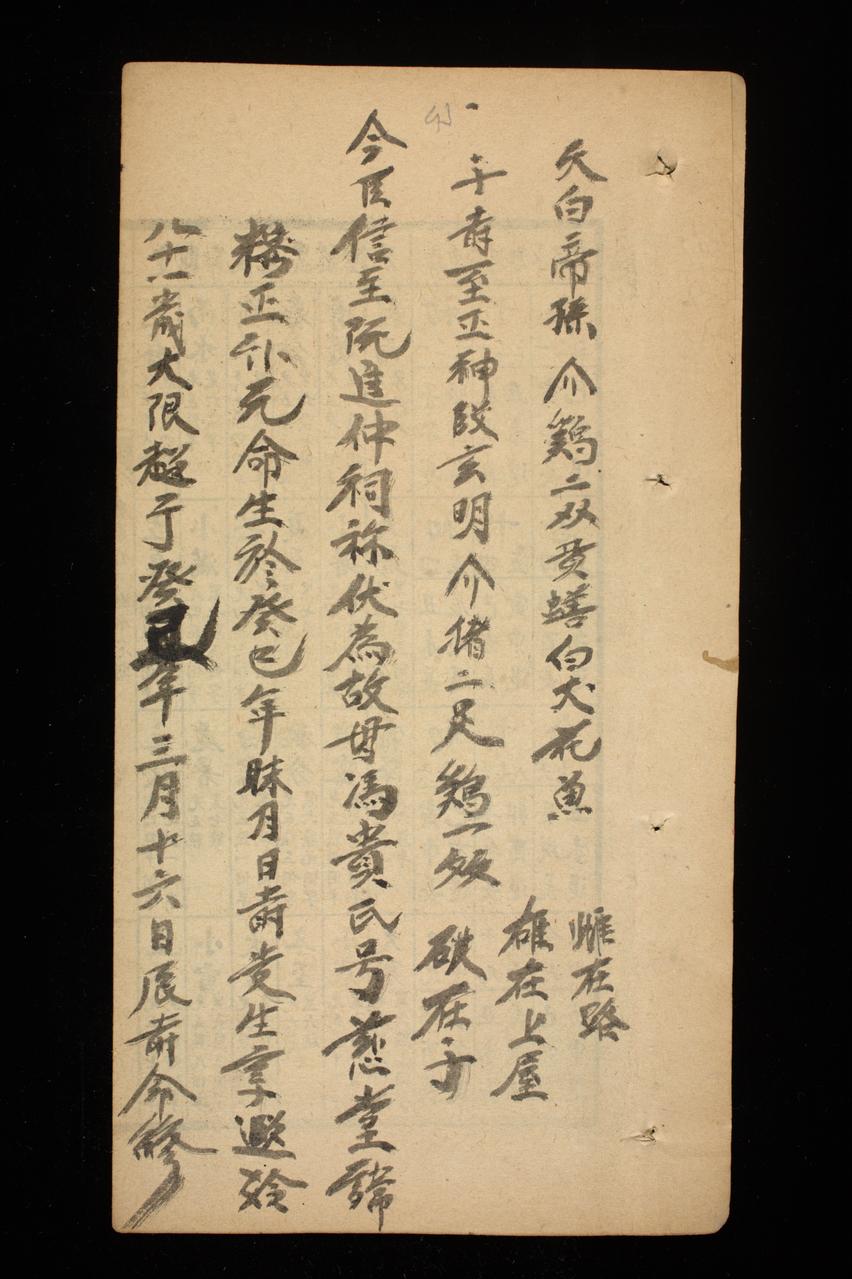 天白帝孫 介鷄二双貫蟮白犬花魚
雌在路
雄在上屋
午㝵至正神殁玄明 介猪二足鷄一双
碌在子
今臣信至阮進仲祠祢伏為故毋馮貴氏号慈堂
正元命生於癸巳年昧月日㝵受生享
八十一歲大限于癸丑年三月十六日辰㝵命